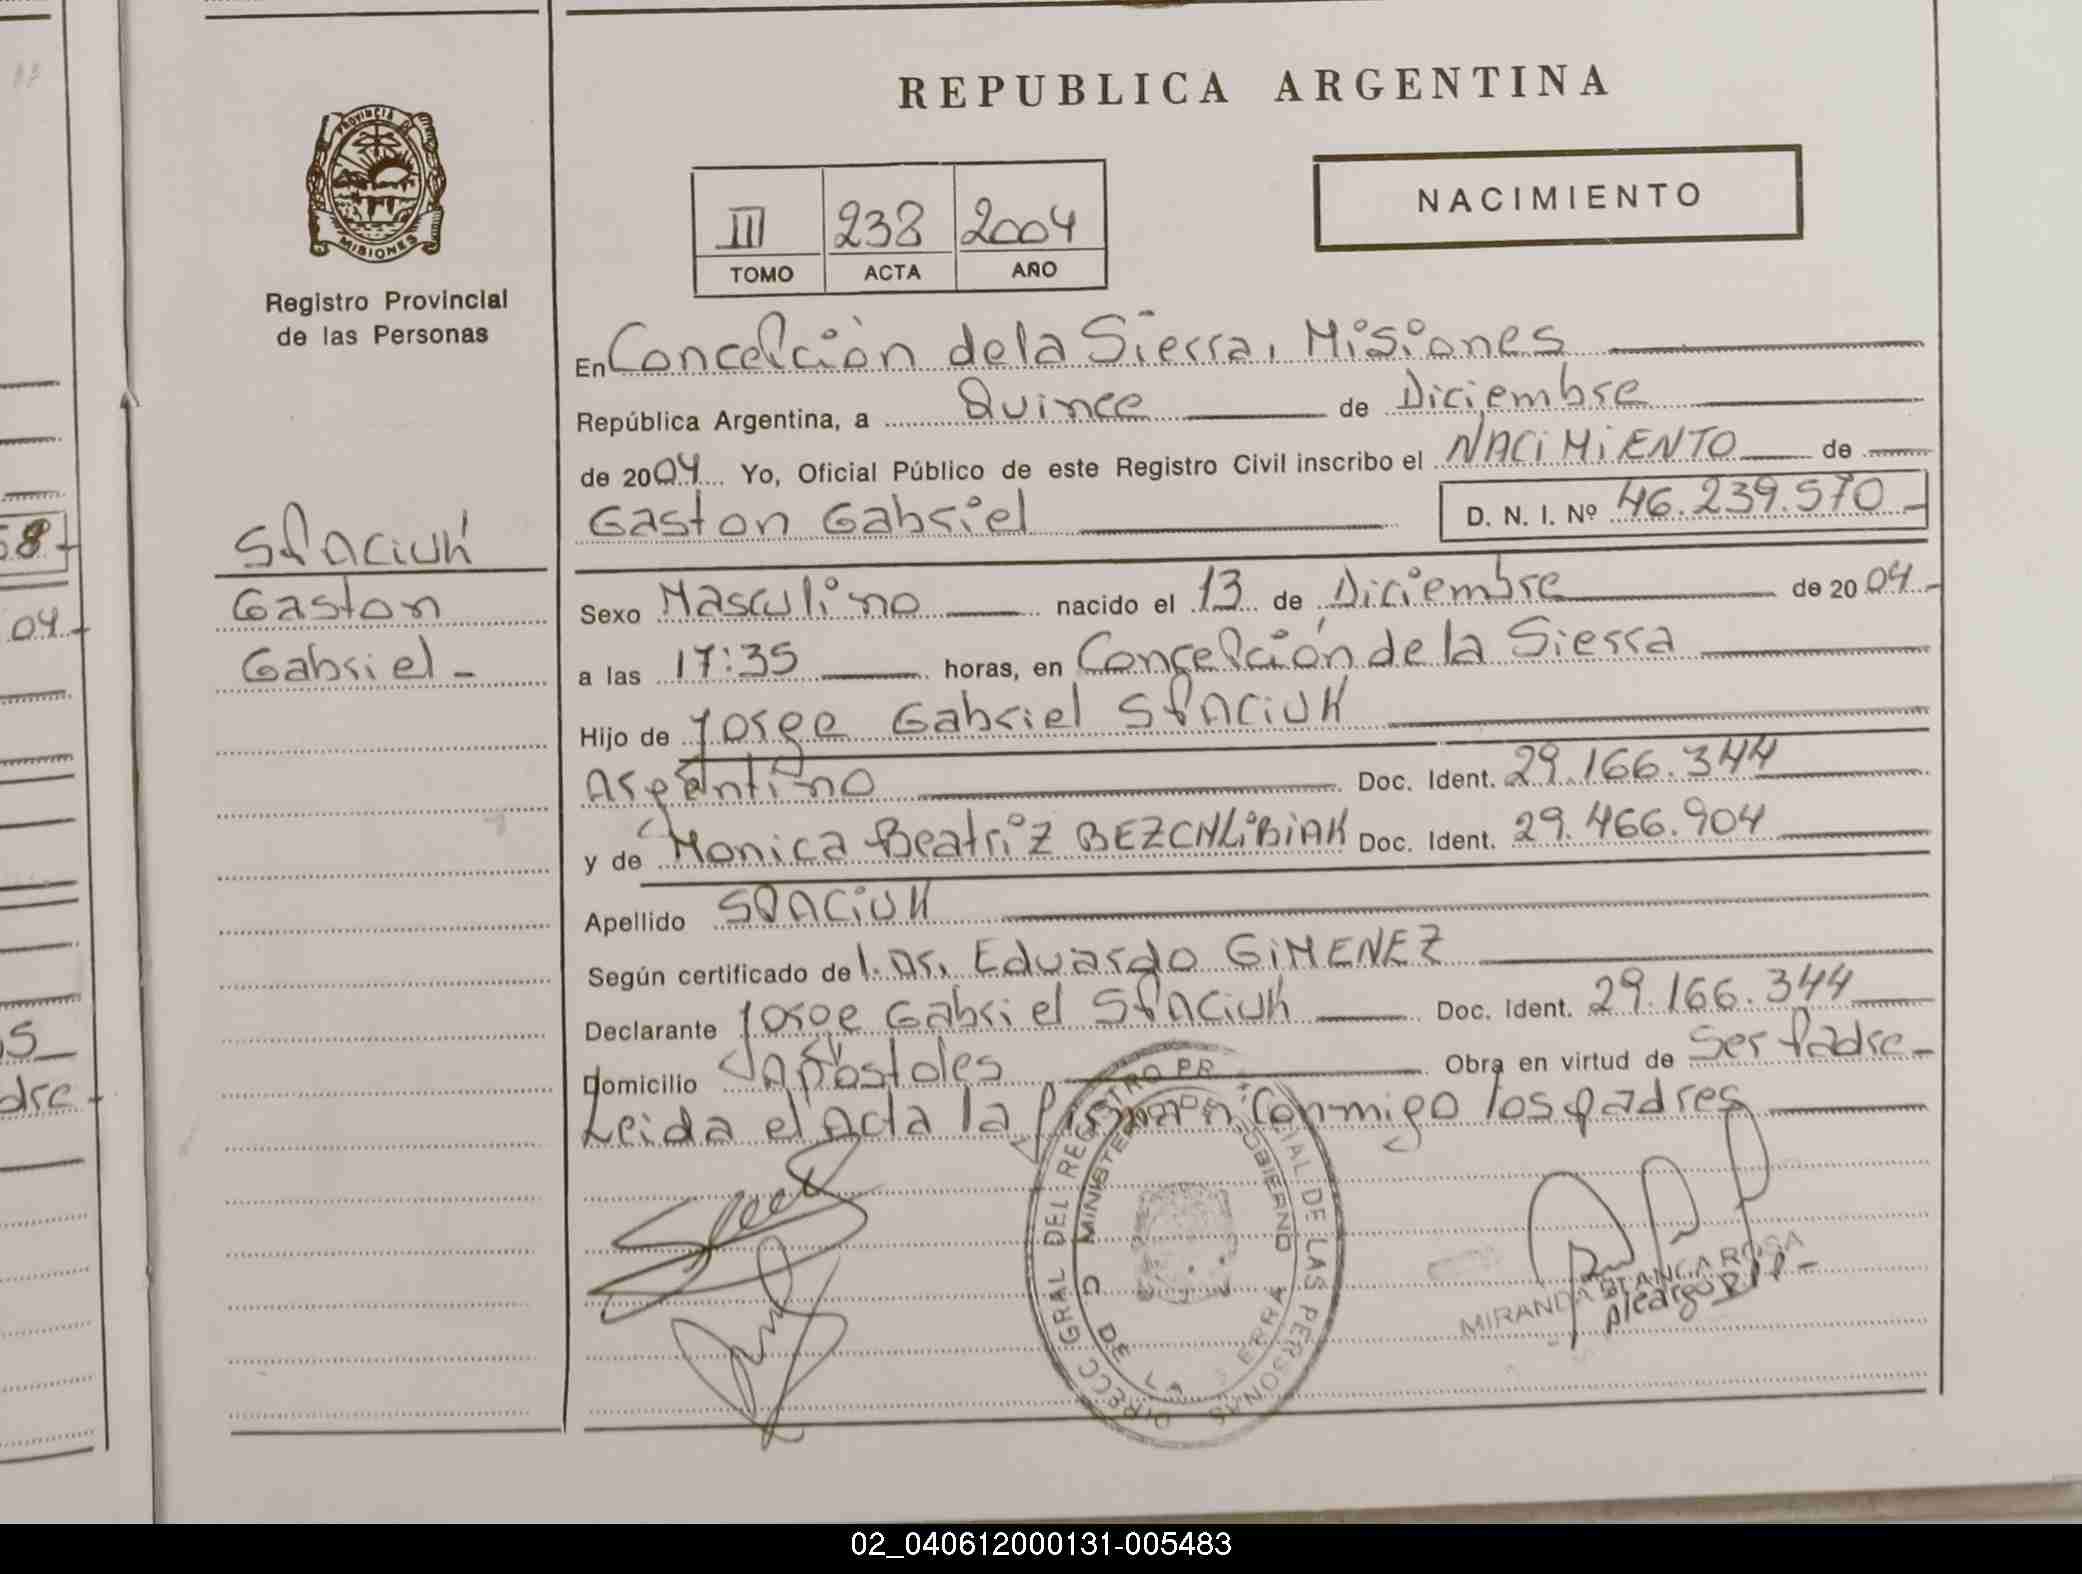 REPUBLICA ARGENTINA
PROVINCIA DE
MISIONES
Registro Provincial
de las Personas
NACIMIENTO
III 238 2004
TOMO ACTA AÑO
En Concepción de la Sierra, Misiones
República Argentina, a Quince de Diciembre
de 2004 Yo, Oficial Público de este Registro Civil inscribo el NACIMIENTO de
Gaston Gabriel D. N. I. Nº 46.239.570
SPACIUK
Gaston
Gabriel
Sexo Masculino nacido el 13 de Diciembre de 2004
a las 17:35 horas, en Concepción de la Sierra
Hijo de Jorge Gabriel SPACIUK
Argentino Doc. Ident. 29.166.344
y de Monica Beatriz BEZCHLIBIAK Doc. Ident. 29.466.904
Apellido SPACIUK
Según certificado de l. Dr. Eduardo GIMENEZ
Declarante Jorge Gabriel SPACIUK Doc. Ident. 29.166.344
Domicilio Apóstoles Obra en virtud de Ser Padre
Leida el Acta la firman conmigo los padres
DIRECC GRAL DEL REGISTRO PR CIAL DE LAS PERSONAS
MINISTE DE GOBIERNO
MIRANDA BLANCA ROSA
A/cargo
58
04
dre
02_040612000131-005483